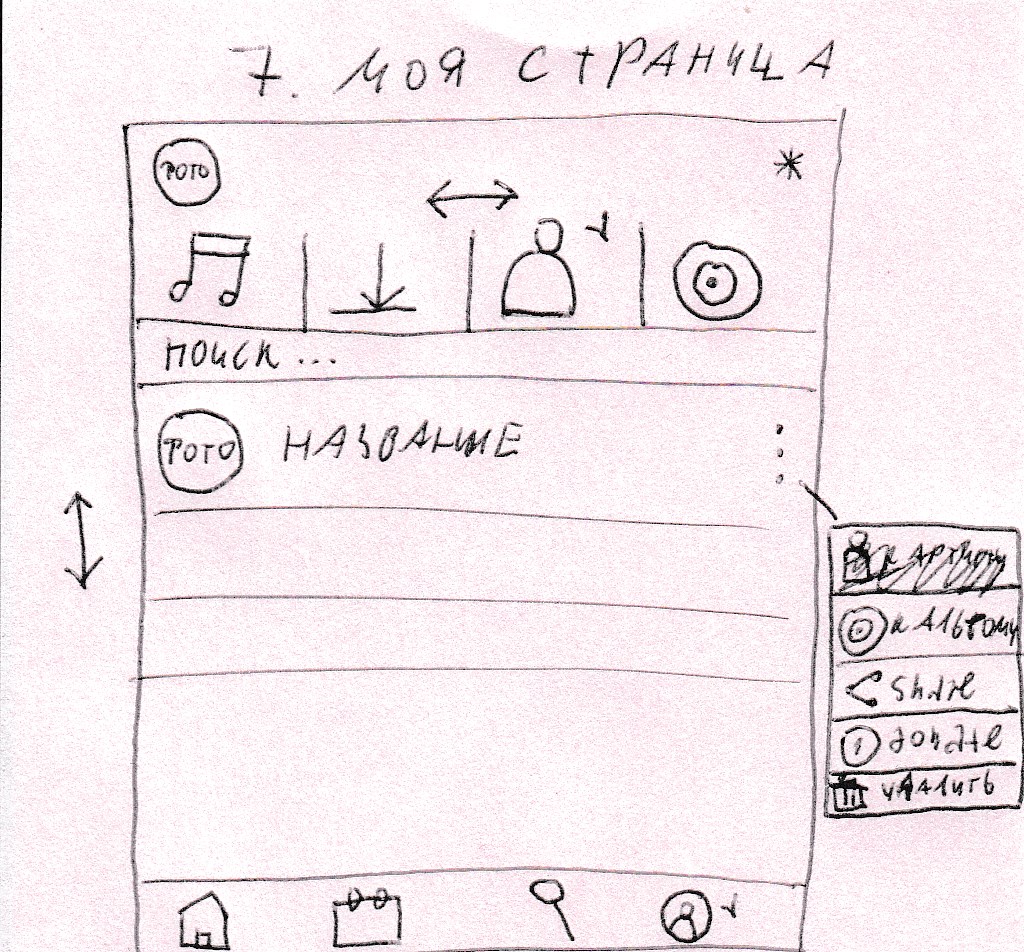 7. МОЯ СТРАНИЦА
ФОТО
ПОИСК ...
ФОТО НАЗВАНИЕ
К АРТИСТУ
К АЛЬБОМУ
Share
donate
УДАЛИТЬ